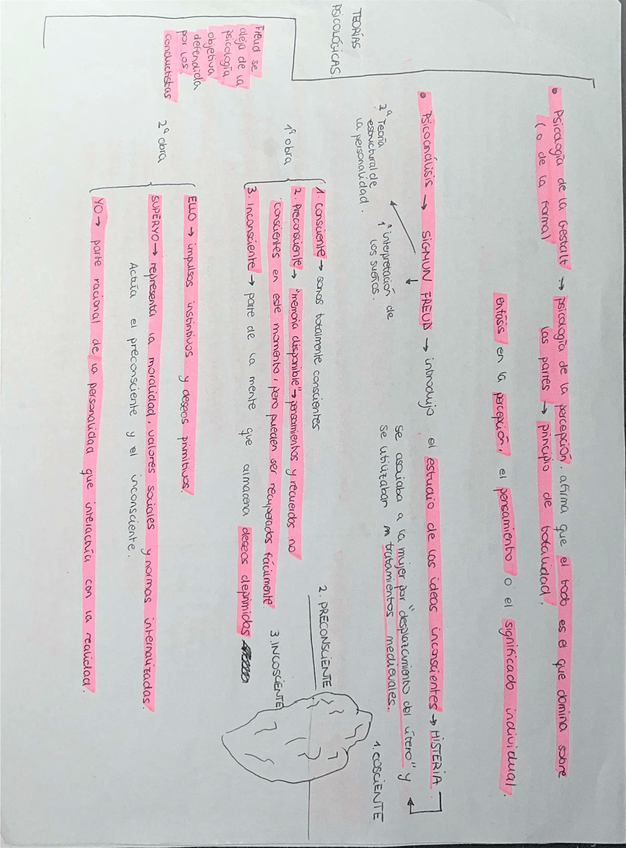 TEORÍAS
PSICOLÓGICAS
• Psicología de la Gestalt → psicología de la percepción. afirma que el todo es el que domina sobre
(o de la forma) las partes → principio de totalidad.
énfasis en la percepción, el pensamiento o el significado individual.
• Psicoanálisis → SIGMUN FREUD → introdujo el estudio de las ideas inconscientes → HISTERIA
se asociaba a la mujer por "desplazamiento del útero" y
se utilizaban tratamientos medievales.
1ª interpretación de
los sueños.
2ª Teoría
estructural de
la personalidad.
1ª obra
1. Consciente → somos totalmente conscientes
2. Preconsciente → "memoria disponible" → pensamientos y recuerdos no
conscientes en este momento, pero pueden ser recuperados fácilmente
3. Inconsciente → parte de la mente que almacena deseos deprimidos
1. COSCIENTE
2. PRECONSCIENTE
3. INCOSCIENTE
Freud se
aleja de la
psicología
objetiva
defendida
por los
conductistas
2ª obra
ELLO → impulsos instintivos y deseos primitivos.
SUPERYO → representa la moralidad, valores sociales y normas internalizadas.
Actúa el preconsciente y el inconsciente.
YO → parte racional de la personalidad que interactúa con la realidad.